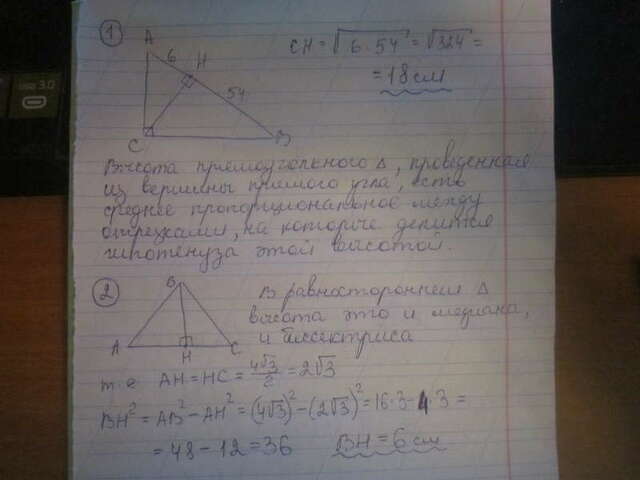 3.0
1
A
6
H
54
C
B
CH = √6·54 = √324 =
= 18 см
Высота прямоугольного Δ, проведенная
из вершины прямого угла, есть
среднее пропорциональное между
отрезками, на которые делится
гипотенуза этой высотой.
2
B
A
H
C
В равностороннем Δ
высота это и медиана,
и биссектриса
т.е AH = HC = 4√3/2 = 2√3
BH² = AB² - AH² = (4√3)² - (2√3)² = 16·3 - 4·3 =
= 48 - 12 = 36
BH = 6 см